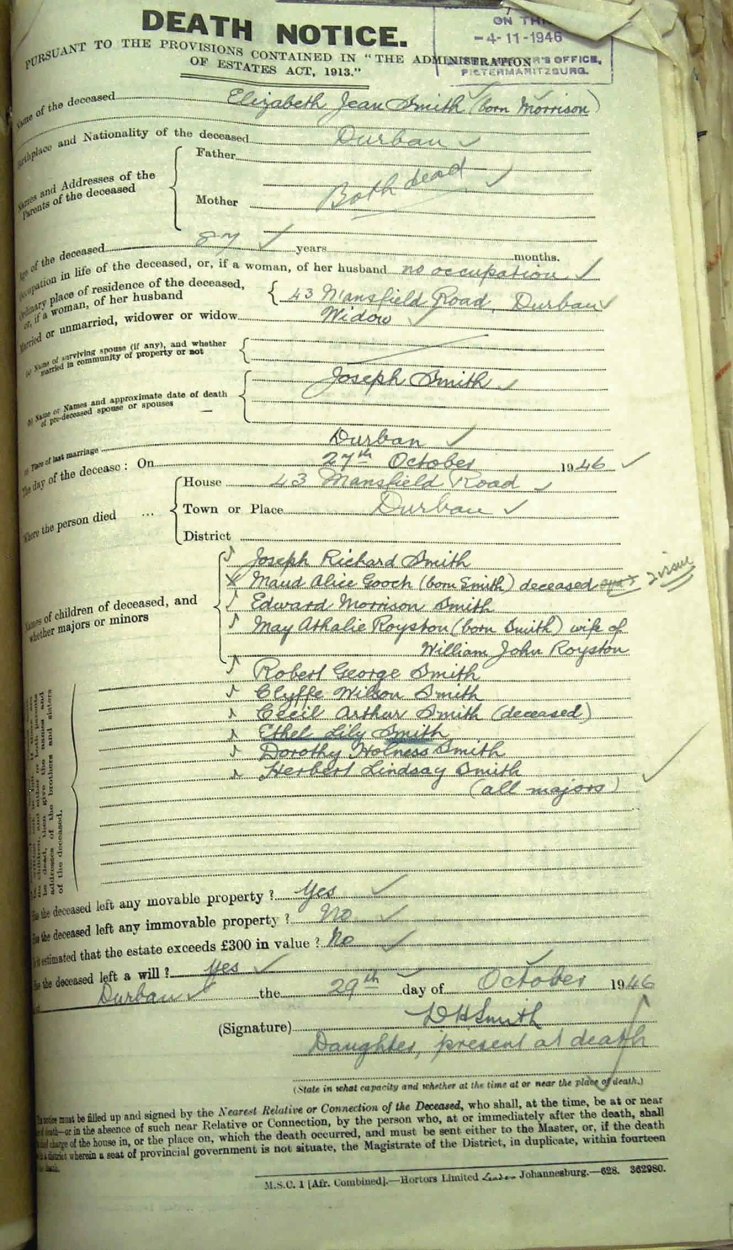 DEATH NOTICE.
ON TH
-4-11-1946
R'S OFFICE,
PIETERMARITZBURG.
PURSUANT TO THE PROVISIONS CONTAINED IN "THE ADMINISTRATION
OF ESTATES ACT, 1913."
Name of the deceased Elizabeth Jean Smith (born Morrison)
Birthplace and Nationality of the deceased Durban
Names and Addresses of the Parents of the deceased
Father
Both dead
Mother
Age of the deceased years months.
Occupation in life of the deceased, or, if a woman, of her husband no occupation
Ordinary place of residence of the deceased, or, if a woman, of her husband 43 Mansfield Road, Durban
Married or unmarried, widower or widow Widow
(a) Name of surviving spouse (if any), and whether married in community of property or not
(b) Name or Names and approximate date of death of pre-deceased spouse or spouses Joseph Smith
(c) Place of last marriage Durban
The day of the decease: On 27th October 1946
Where the person died ...
House 43 Mansfield Road
Town or Place Durban
District
Names of children of deceased, and whether majors or minors
Joseph Richard Smith
Maud Alice Gooch (born Smith) deceased 2 issue
Edward Morrison Smith
May Athalie Royston (born Smith) wife of
William John Royston
Robert George Smith
Clyffe Wilson Smith
Cecil Arthur Smith (deceased)
Ethel Lily Smith
Dorothy Holness Smith
Herbert Lindsay Smith
(all majors)
be dead, then give the names and
addresses of the brothers and sisters
of the deceased.
Has the deceased left any movable property? Yes
Has the deceased left any immovable property? No
Is it estimated that the estate exceeds £300 in value? No
Has the deceased left a will? Yes
Durban the 29th day of October 1946
(Signature) DHSmith
Daughter, present at death
(State in what capacity and whether at the time at or near the place of death.)
notice must be filled up and signed by the Nearest Relative or Connection of the Deceased, who shall, at the time, be at or near
of death—or in the absence of such near Relative or Connection, by the person who, at or immediately after the death, shall
charge of the house in, or the place on, which the death occurred, and must be sent either to the Master, or, if the death
a district wherein a seat of provincial government is not situate, the Magistrate of the District, in duplicate, within fourteen
death.
M.S.C. 1 [Afr. Combined].—Hortors Limited Johannesburg.—628. 362980.